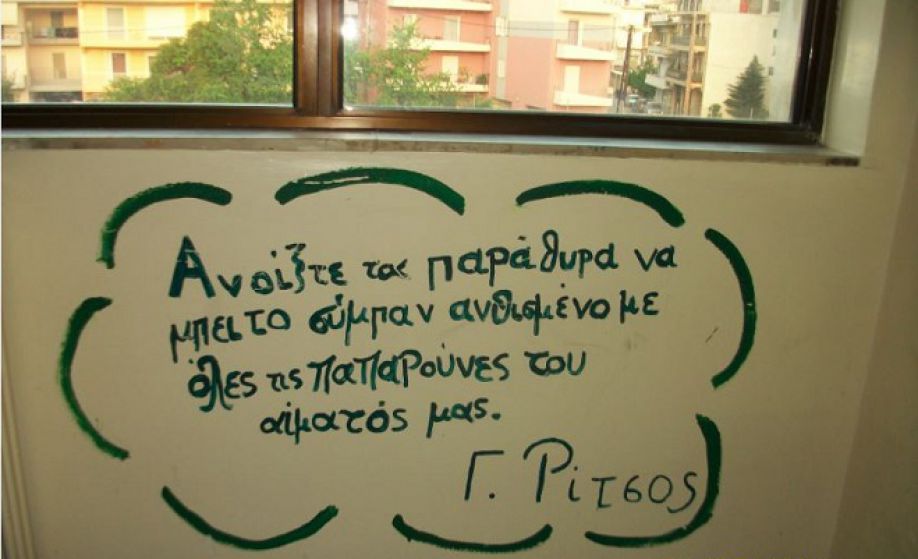 Ανοίξτε τα παράθυρα να
μπει το σύμπαν ανθισμένο με
όλες τις παπαρούνες του
αίματός μας.
Γ. Ρίτσος